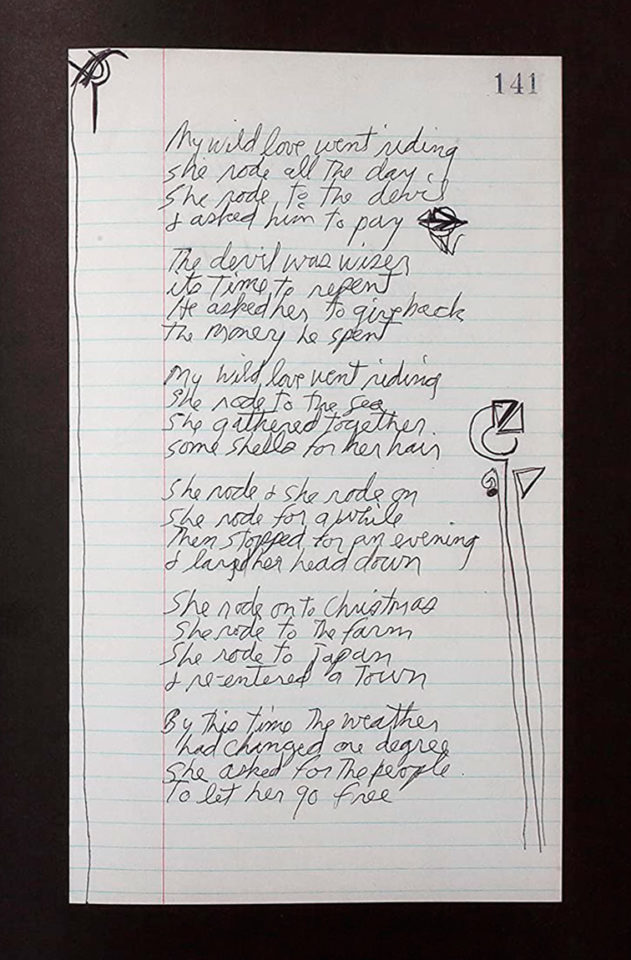 141
My wild love went riding
she rode all the day
She rode to the devil
& asked him to pay
The devil was wiser
its time to repent
He asked her to give back
the money he spent
My wild love went riding
She rode to the sea
She gathered together
some shells for her hair
She rode & she rode on
She rode for a while
Then stopped for an evening
& layed her head down
She rode on to Christmas
She rode to the farm
She rode to Japan
& re-entered a Town
By this time the weather
had changed one degree
She asked for the people
to let her go free